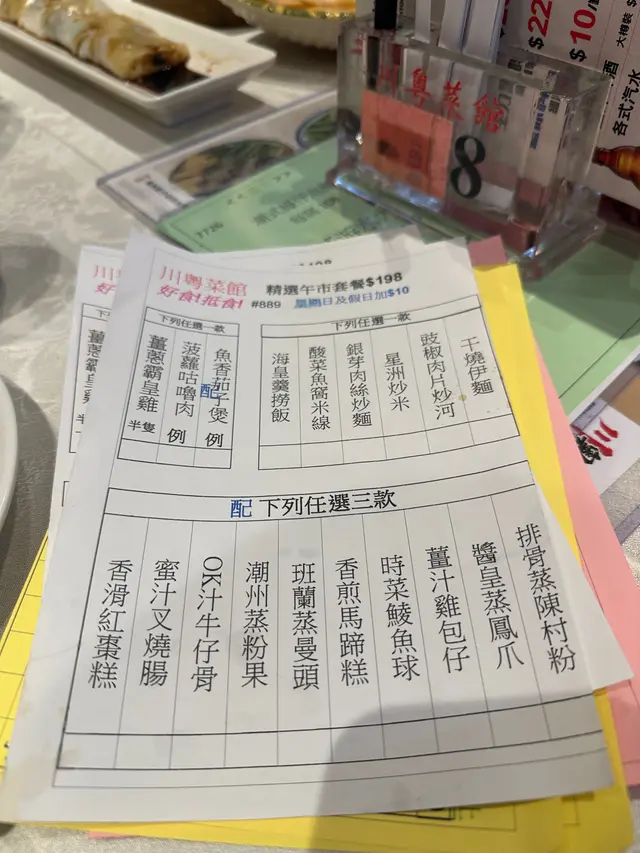 $22
$10/
大樽裝
酒
各式汽水
粵菜館
8
川粵菜館
好食!抵食!
精選午市套餐$198
#889 星期日及假日加$10
下列任選一款
魚香茄子煲 例
菠蘿咕嚕肉 例
薑蔥霸皇雞 半隻
配
下列任選一款
干燒伊麵
豉椒肉片炒河
星洲炒米
銀芽肉絲炒麵
酸菜魚窩米線
海皇羹撈飯
配 下列任選三款
排骨蒸陳村粉
醬皇蒸鳳爪
薑汁雞包仔
時菜鯪魚球
香煎馬蹄糕
班蘭蒸曼頭
潮州蒸粉果
OK汁牛仔骨
蜜汁叉燒腸
香滑紅棗糕
川
好食
下列
薑蔥霸皇雞 半隻